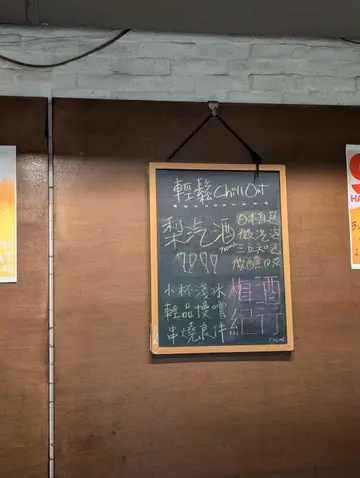 輕鬆Chill Out
梨汽酒
日本直送
微汽泡
三五知己
微醺
小杯淺冰
輕品慢嚐
串燒良伴
梅酒
紀行
HA